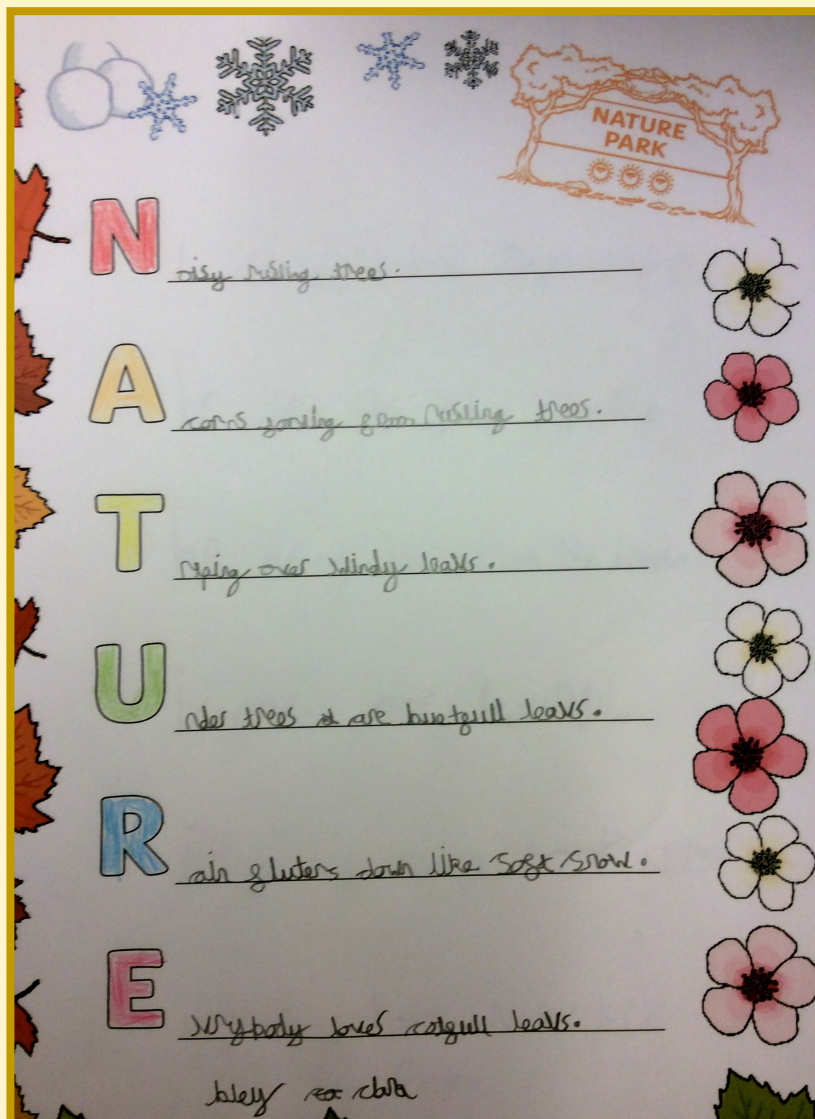 NATURE
PARK
Noisy rusling trees.
Acorns forling from rusling trees.
Triping over windy leavs.
Under trees are buetfull leavs.
Rain fluters down like soft snow.
Evrybody loves colfull leavs.